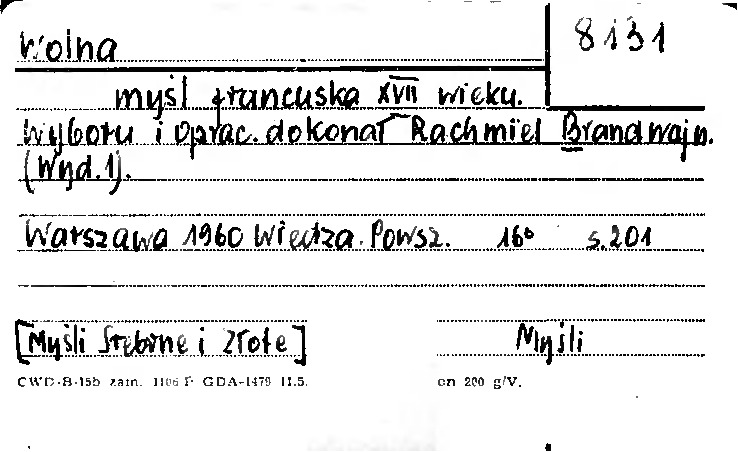 Wolna
8131
myśl francuska XVII wieku.
Wyboru i oprac. dokonał Rachmiel Brandwajn.
(Wyd.1).
Warszawa 1960 Wiedza. Powsz. 16° s.201
[Myśli Srebrne i Złote]
Myśli
CWD-B-15b zam. 1106 F GDA-1479 11.5.
en 200 g/V.